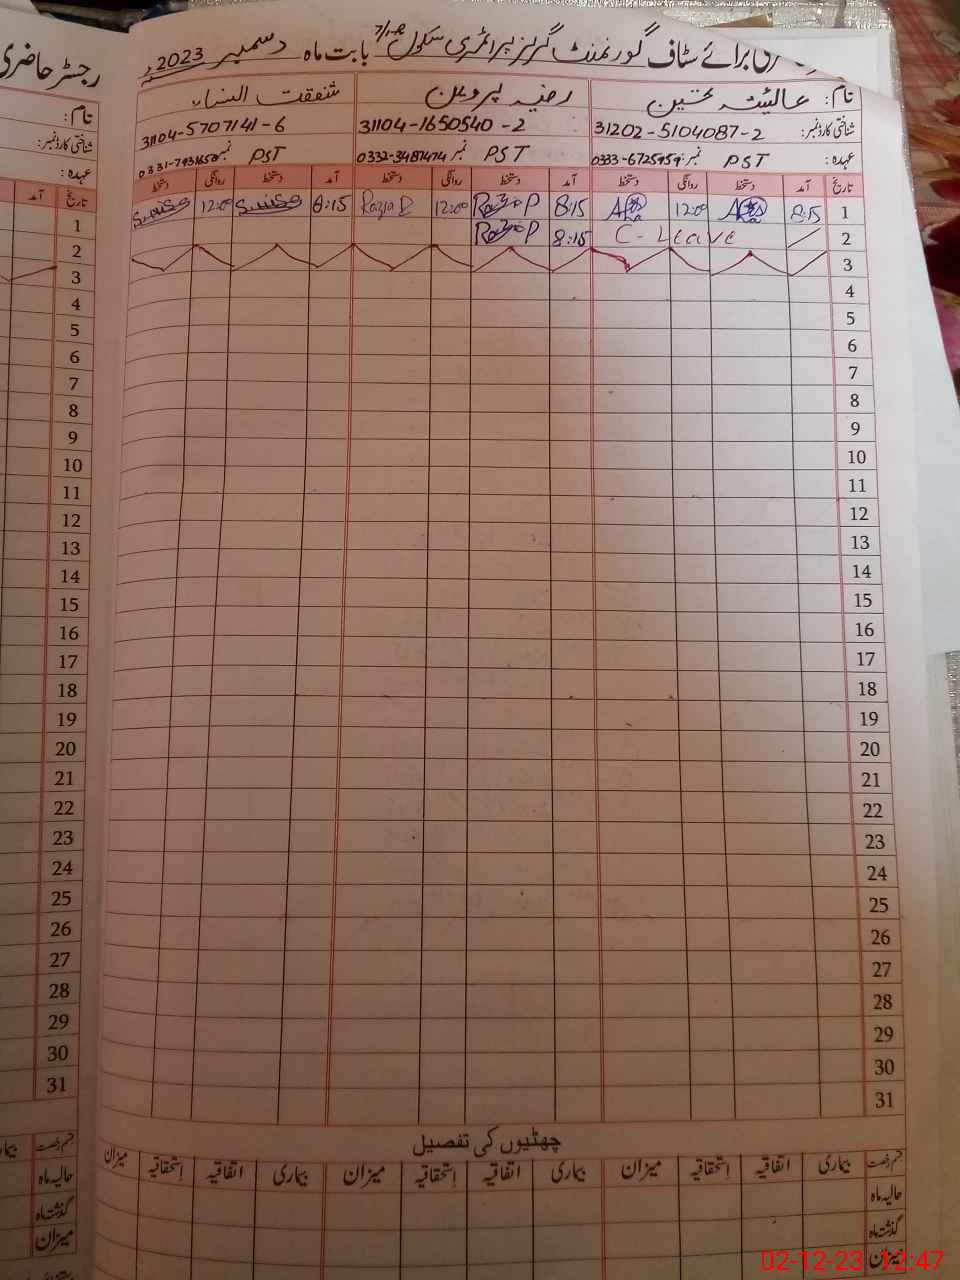 رجسٹر حاضری
ری برائے سٹاف گورنمنٹ گرلز پرائمری سکول بابت ماہ دسمبر 2023ء
نام: عائشہ تحسین رضیہ پروین شفقت النساء
شناختی کارڈ نمبر: 31202-5104087-2 31104-1650540-2 31104-5707141-6
عہدہ: PST نمبر 0333-6725959 PST نمبر 0332-3487474 PST نمبر
تاریخ آمد دستخط روانگی دستخط آمد دستخط روانگی دستخط آمد دستخط روانگی دستخط
1 8:15 12:00 8:15 Razia P 12:00 Razia P 8:15 12:00
2 C-Leave 8:15 Razia P
3
4
5
6
7
8
9
10
11
12
13
14
15
16
17
18
19
20
21
22
23
24
25
26
27
28
29
30
31
چھٹیوں کی تفصیل
قسم رخصت بیماری اتفاقیہ استحقاقیہ میزان بیماری اتفاقیہ استحقاقیہ میزان بیماری اتفاقیہ استحقاقیہ میزان
حالیہ ماہ
گذشتہ ماہ
میزان
نام:
شناختی کارڈ نمبر:
عہدہ:
تاریخ آمد
1
2
3
4
5
6
7
8
9
10
11
12
13
14
15
16
17
18
19
20
21
22
23
24
25
26
27
28
29
30
31
قسم رخصت
حالیہ ماہ
گذشتہ ماہ
میزان
02-12-23 12:47